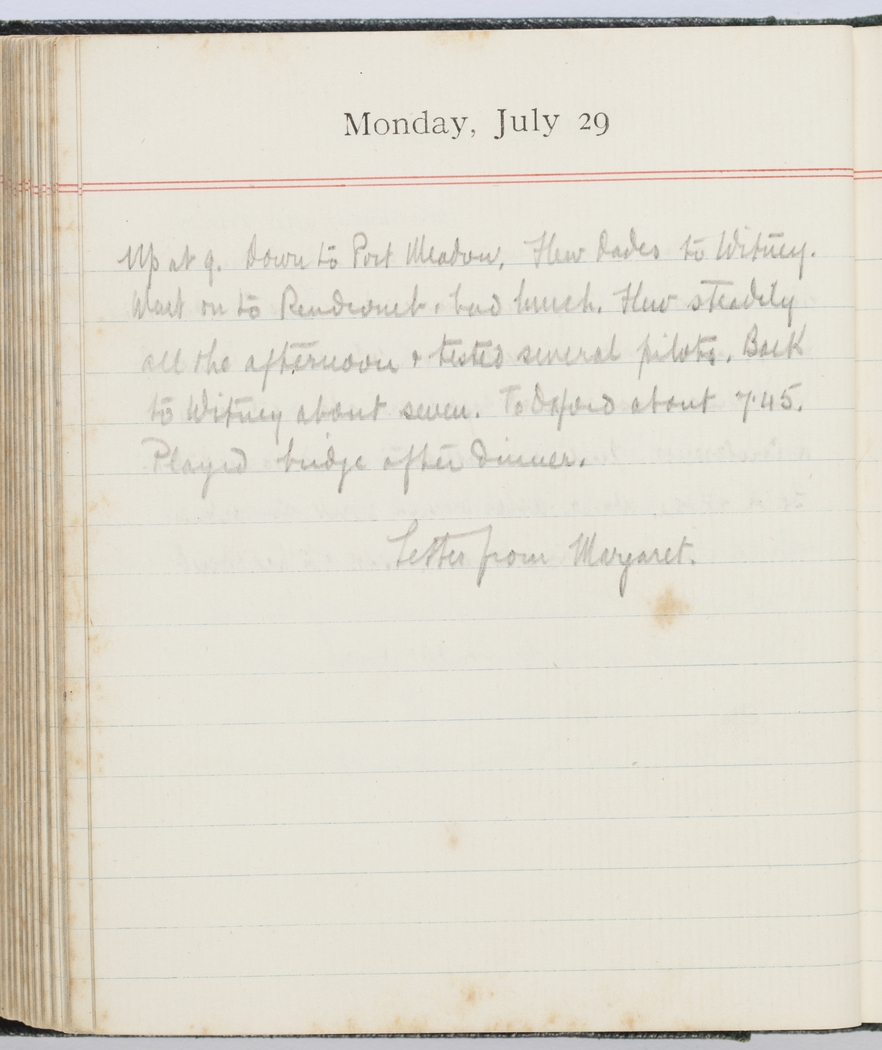 Monday, July 29
Up at 9. Down to Port Meadow. Flew Dades to Witney.
Went on to Rendcomb & had lunch. Flew steadily
all the afternoon & tested several pilots. Back
to Witney about seven. To Oxford about 7.45.
Played bridge after dinner.
Letter from Margaret.